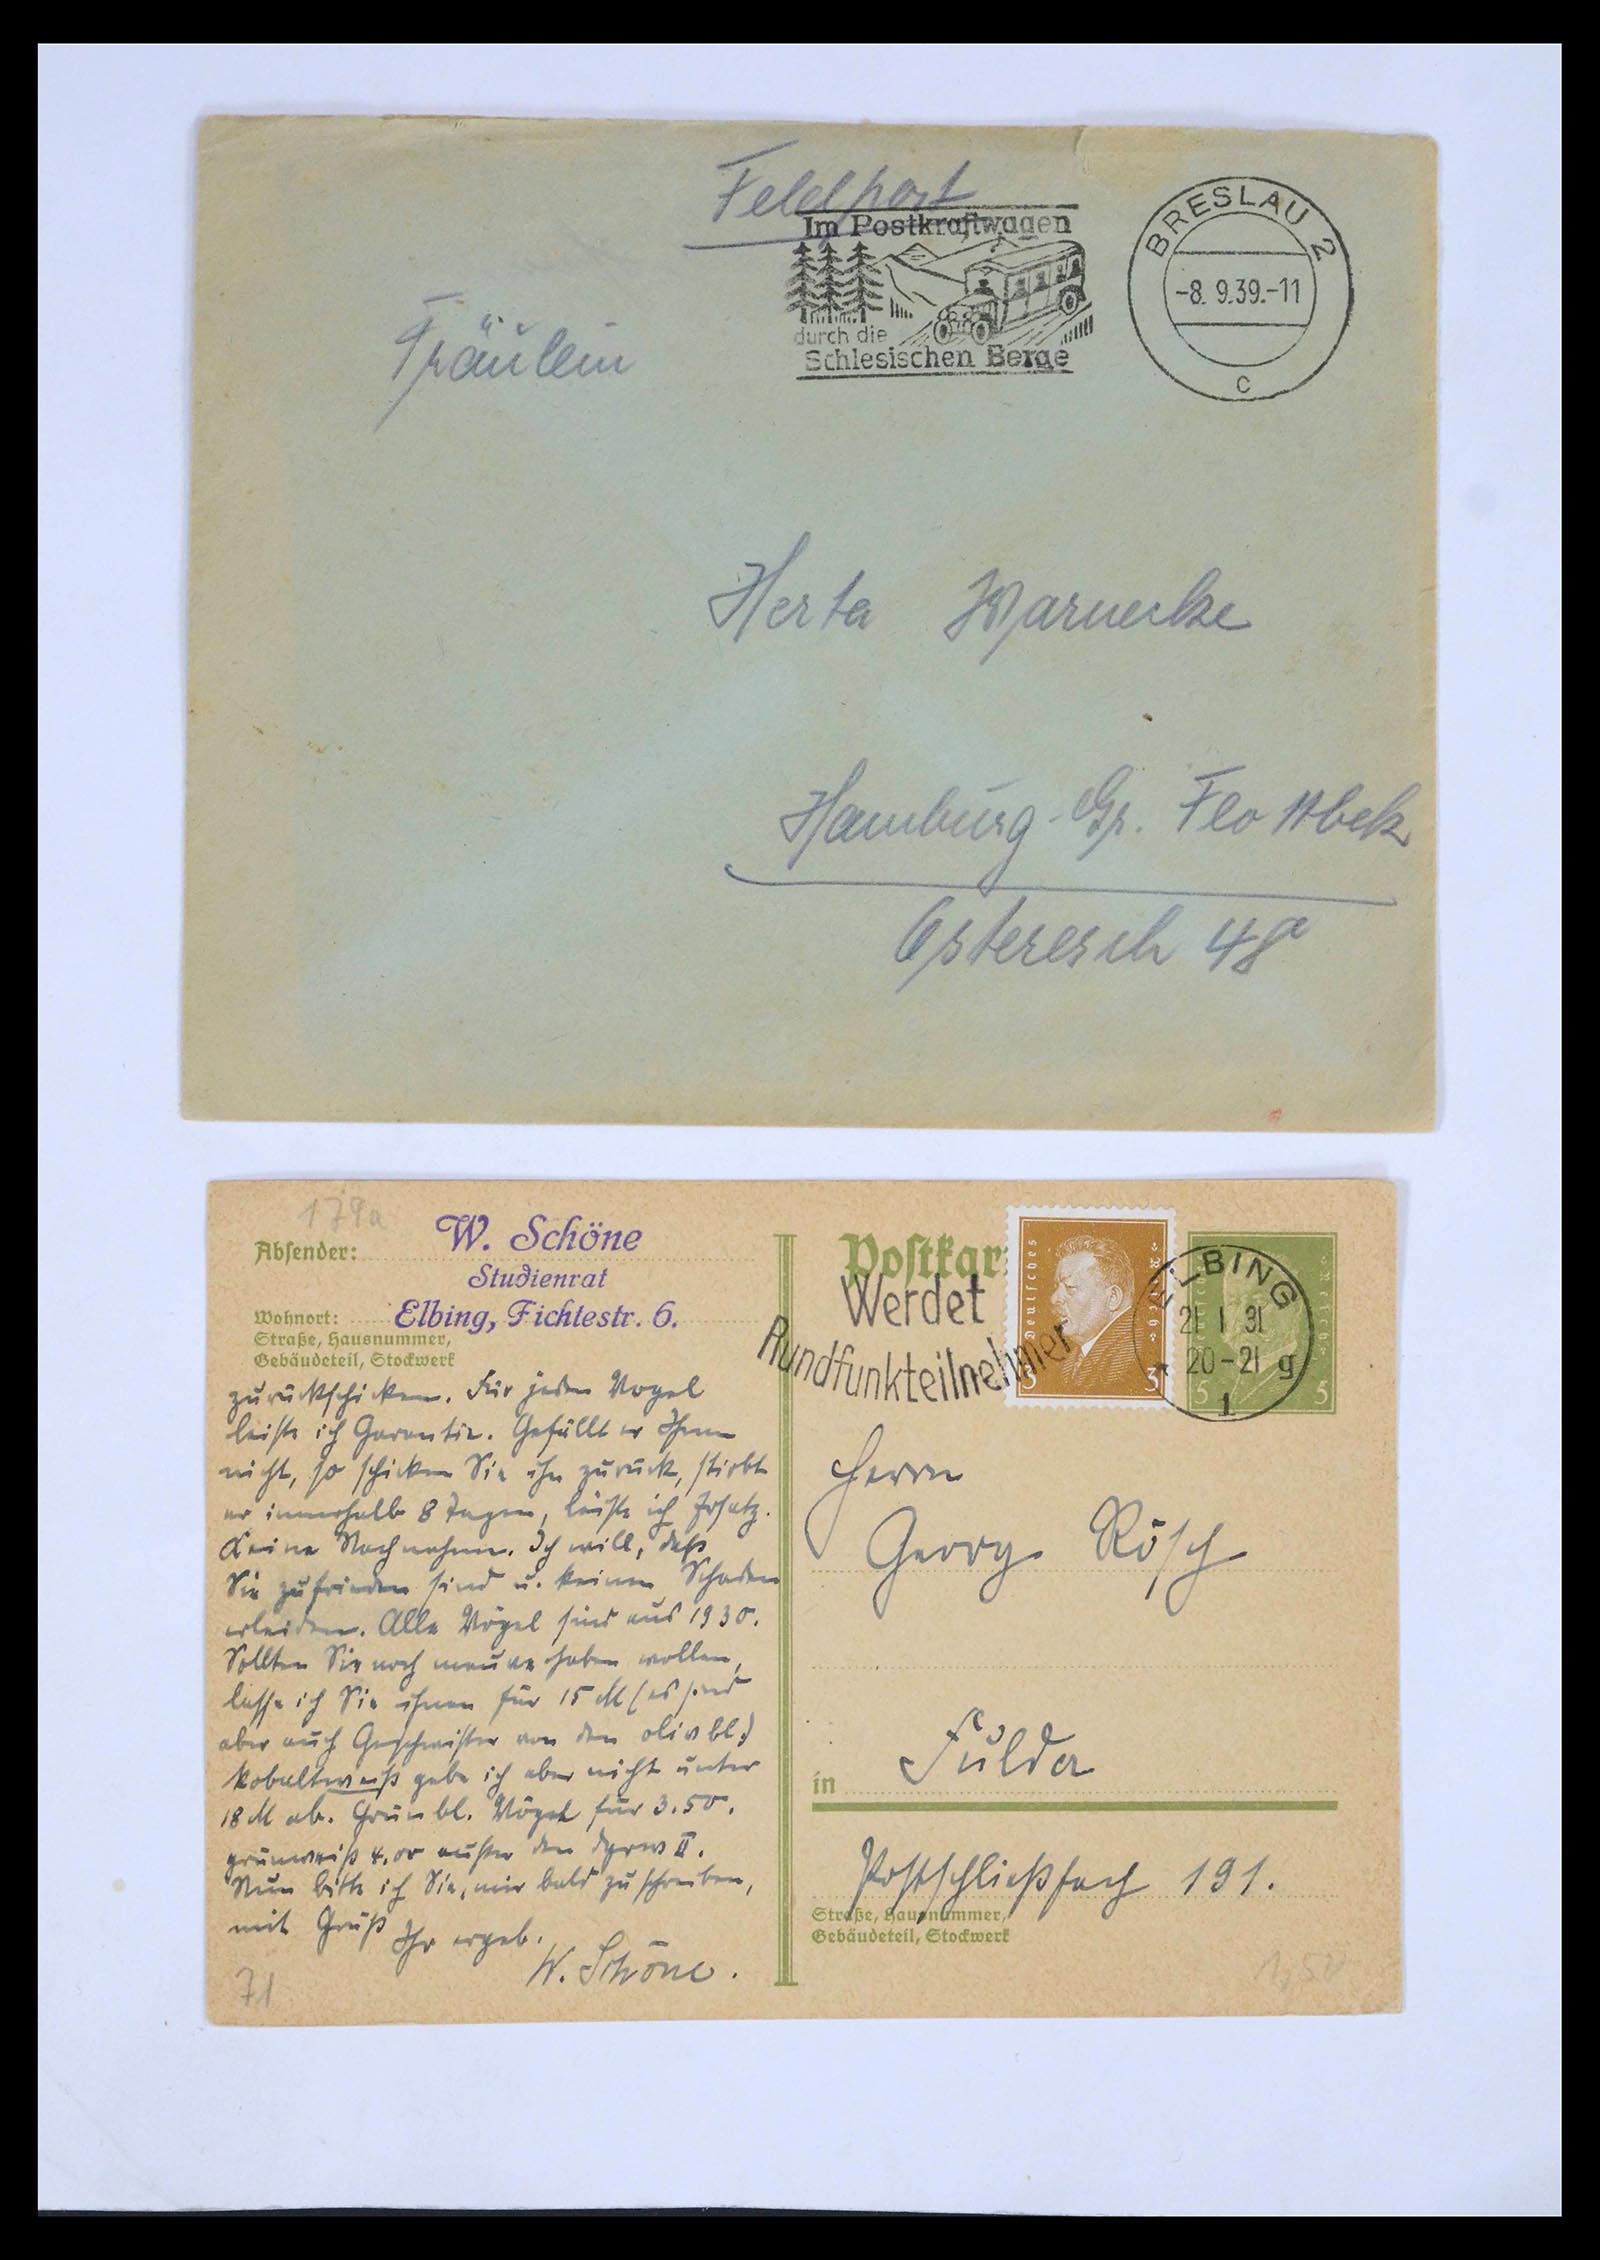 Feldpost
Im Postkraftwagen
durch die
Schlesischen Berge
BRESLAU 2
-8. 9.39.-11
c
Fräulein
Herta Warnecke
Hamburg-Gr. Flottbek
Osteresch 48a
179a
Absender:
W. Schöne
Studienrat
Wohnort:
Elbing, Fichtestr. 6.
Straße, Hausnummer,
Gebäudeteil, Stockwerk
zurückschicken. Für jeden Vogel
leiste ich Garantie. Gefällt er Ihnen
nicht, so schicken Sie ihn zurück, stirbt
er innerhalb 8 Tagen, leiste ich Ersatz.
Keine Nachnahme. Ich will, daß
Sie zufrieden sind u. keinen Schaden
erleiden. Alle Vögel sind aus 1930.
Sollten Sie noch mauve haben wollen,
lasse ich Sie ihnen für 15 M (es sind
aber auch Geschwister von den olivbl.)
kobaltweiß gebe ich aber nicht unter
18 M ab. Grünbl. Vögel für 3.50.
grünweiß 4.00 außer den II.
Nun bitte ich Sie, mir bald zu schreiben,
mit Gruß
Ihr ergeb.
W. Schöne.
71
Postkar
Werdet
Rundfunkteilnehmer
Deutsches
Reich
3 3
ELBING
21 1 31
* 20-21 g
1
5 5
Herrn
Georg Rösch
in Fulda
Postschließfach 191.
Straße, Hausnummer,
Gebäudeteil, Stockwerk
1,50